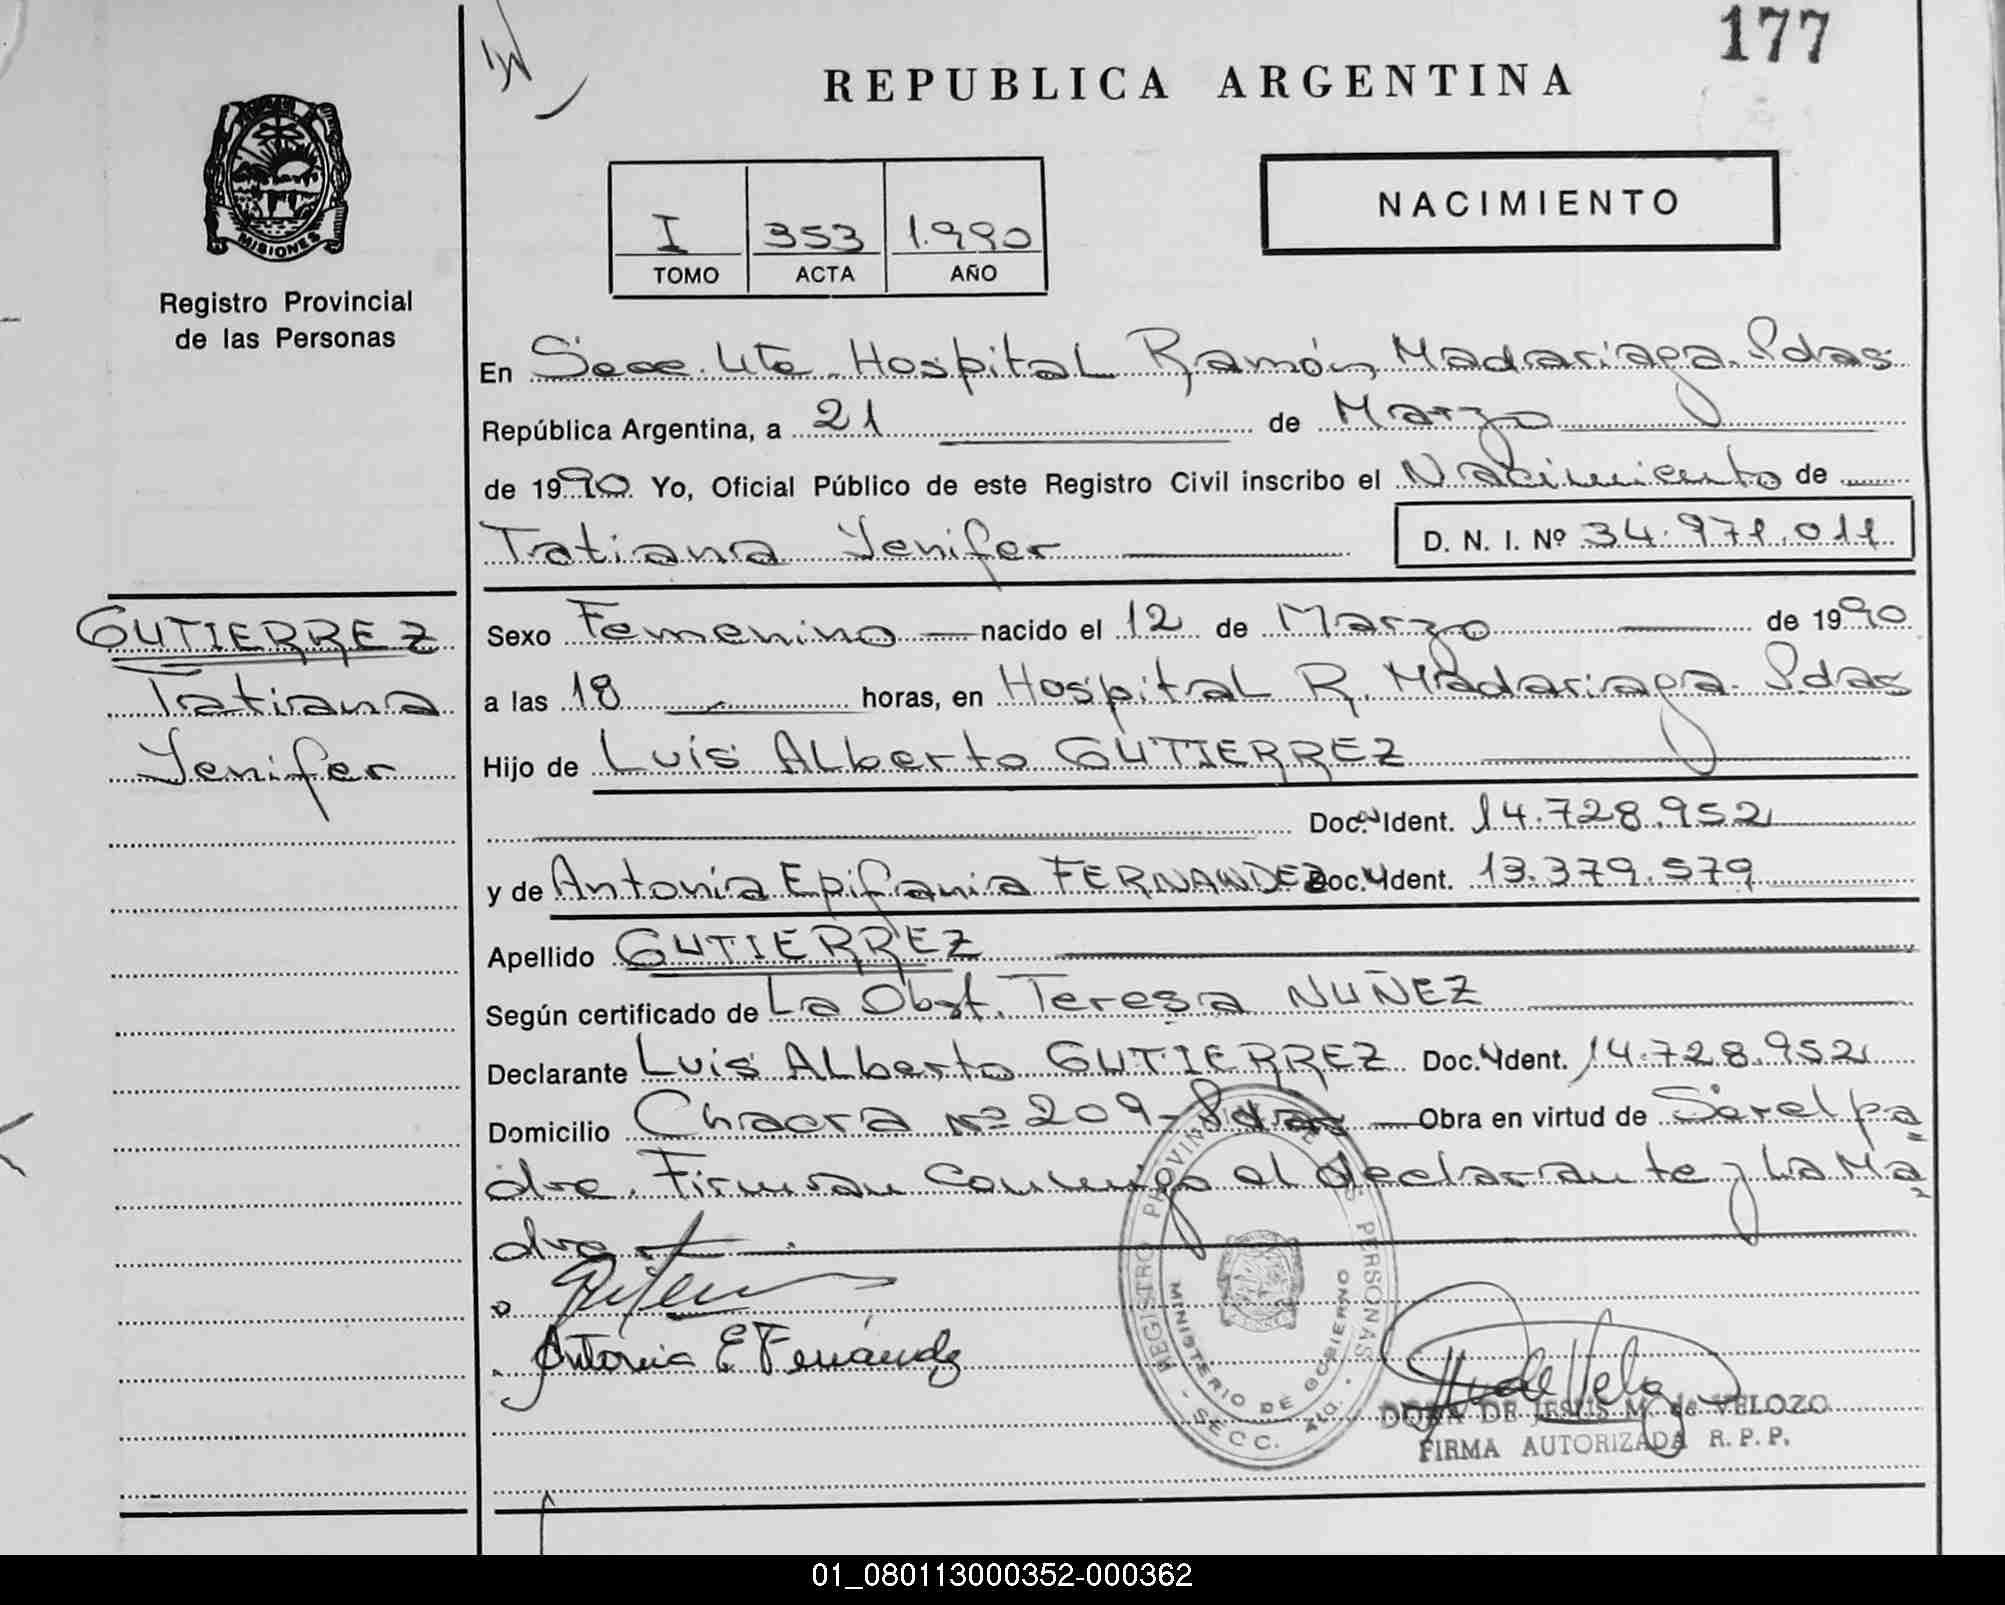 177
REPUBLICA ARGENTINA
NACIMIENTO
I 353 1.990
TOMO ACTA AÑO
MISIONES
Registro Provincial
de las Personas
En Secc. 4ta Hospital Ramón Madariaga. Pdas
República Argentina, a 21 de Marzo
de 1990 Yo, Oficial Público de este Registro Civil inscribo el Nacimiento de
Tatiana Yenifer D. N. I. Nº 34.971.011
GUTIERREZ
Tatiana
Yenifer
Sexo Femenino nacido el 12 de Marzo de 1990
a las 18 horas, en Hospital R. Madariaga. Pdas
Hijo de Luis Alberto GUTIERREZ
Doc. Ident. 14.728.952
y de Antonia Epifania FERNANDEZ Doc. Ident. 13.379.579
Apellido GUTIERREZ
Según certificado de La Obst. Teresa NUÑEZ
Declarante Luis Alberto GUTIERREZ Doc. Ident. 14.728.952
Domicilio Chacra nº 209 - Pdas Obra en virtud de Ser el pa
dre. Firman conmigo el declarante y La Ma
dre
Antonia E Fernández
REGISTRO PROVINCIAL DE LAS PERSONAS
MINISTERIO DE GOBIERNO
SECC. 4ta.
DORA DE JESUS M. de VELOZO
FIRMA AUTORIZADA R. P. P.
01_080113000352-000362